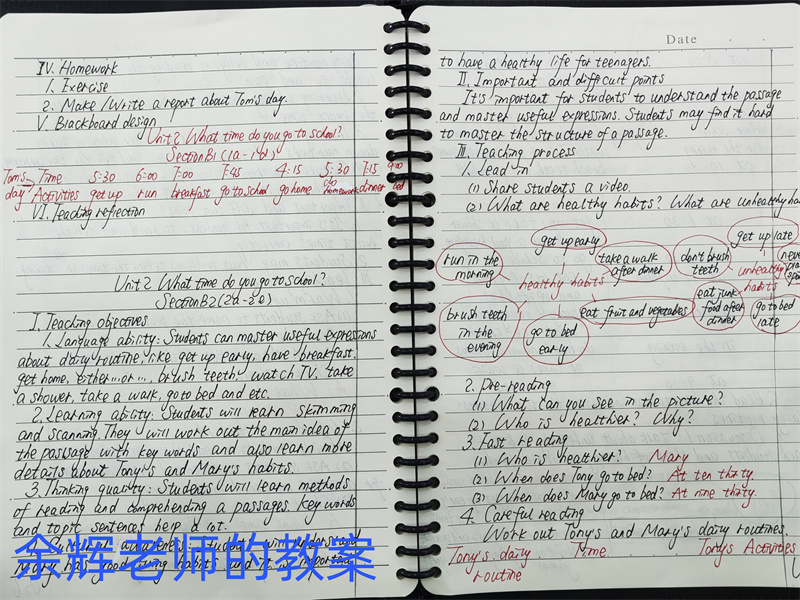 IV. Homework
1. Exercise
2. Make/Write a report about Tom's day.
V. Blackboard design
Unit 2 What time do you go to school?
Section B1 (1a-1d)
Tom's day
Time 5:30 6:00 7:00 7:45 4:15 5:30 7:15 9:00
Activities get up run breakfast go to school go home do homework dinner bed
VI. Teaching reflection
Unit 2 What time do you go to school?
Section B2 (2a-2e)
I. Teaching objectives
1. Language ability: Students can master useful expressions
about daily routine, like get up early, have breakfast,
get home, either...or..., brush teeth, watch TV, take
a shower, take a walk, go to bed and etc.
2. Learning ability: Students will learn skimming
and scanning. They will work out the main idea of
the passage with key words and also learn more
details about Tony's and Mary's habits.
3. Thinking quality: Students will learn methods
of reading and comprehending a passages. Key words
and topic sentences help a lot.
students will understand
Mary has good living habits and it is important
余辉老师的教案
Date
to have a healthy life for teenagers.
II. Important and difficult points
It's important for students to understand the passage
and master useful expressions. Students may find it hard
to master the structure of a passage.
III. Teaching process
1. Lead in
(1) Share students a video.
(2) What are healthy habits? What are unhealthy
healthy habits
get up early
run in the morning
take a walk after dinner
brush teeth in the evening
go to bed early
eat fruit and vegetables
unhealthy habits
get up late
don't brush teeth
eat junk food after dinner
go to bed late
never
2. Pre-reading
(1) What can you see in the picture?
(2) Who is healthier? Why?
3. Fast reading
(1) Who is healthier? Mary
(2) When does Tony go to bed? At ten thirty
(3) When does Mary go to bed? At nine thirty.
4. Careful reading
Work out Tony's and Mary's daily routines.
Tony's daily routine
Time
Tony's Activities